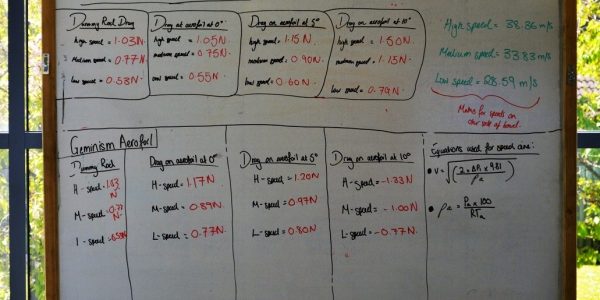 Dummy Rod Drag
high speed = 1.03N
medium speed = 0.77N
low speed = 0.53N
Drag at aerofoil at 0°
high speed = 1.05N
medium speed = 0.75N
low speed = 0.55N
Drag on aerofoil at 5°
high speed = 1.15N
medium speed = 0.90N
low speed = 0.60N
Drag on aerofoil at 10°
high speed = 1.50N
medium speed = 1.15N
low speed = 0.79N
High speed = 38.36 m/s
Medium speed = 33.83 m/s
Low speed = 28.59 m/s
for speeds on
other side of board.
Geminism Aerofoil
Dummy Rod
H-speed = 1.03
N
M-speed = 0.77
N
l-speed =
Drag on aerofoil at 0°
H-speed = 1.17N
M-speed = 0.89N
L-speed = 0.77N
Drag on aerofoil at 5°
H-speed = 1.20N
M-speed = 0.97N
L-speed = 0.80N
Drag on aerofoil at 10°
H-speed = -1.33N
M-speed = -1.00N
L-speed = -0.77N
Equations used for speed are:
• V = √((2 x ΔA x 9.81) / ρa)
• ρa = (Pa x 100) / RTa